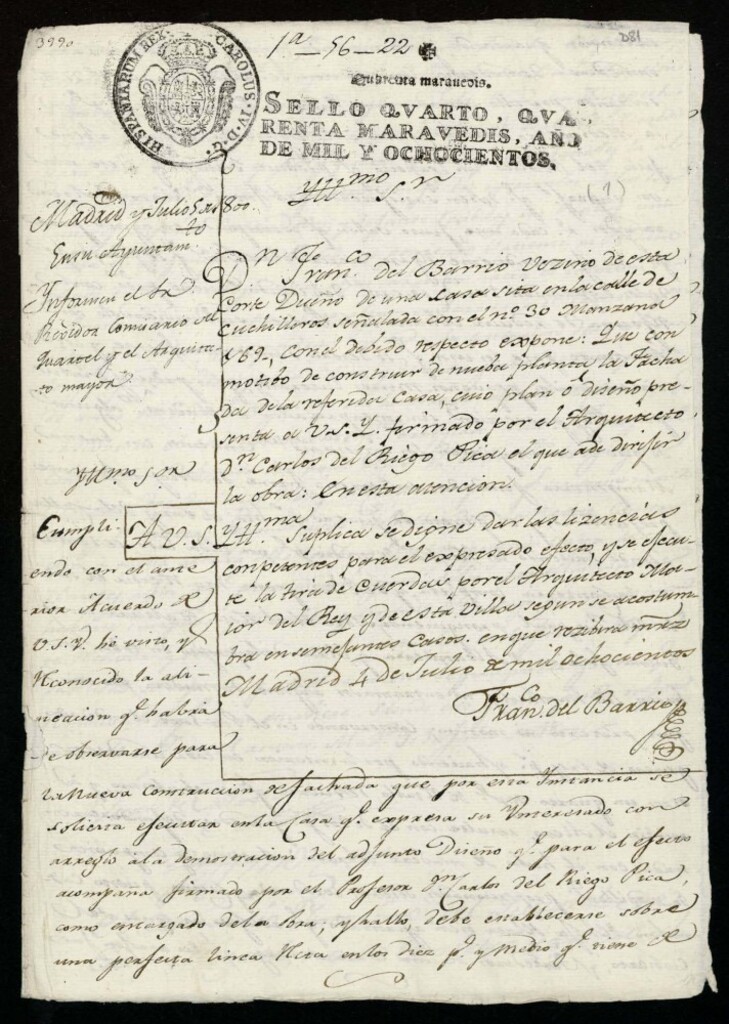 3990
D81
1ª - 56 - 22
HISPANIARUM REX
CAROLUS IV D. G.
Quarenta maravedis.
SELLO QVARTO, QVA-
RENTA MARAVEDIS, AÑO
DE MIL Y OCHOCIENTOS.
YIImo Sr
(1)
Madrid y Julio 5 de 1800.
En su Ayuntamto
Informen el Sr
Regidor Comisario del
Quartel y el Arquitec-
to mayor.
Dn Franco del Barrio Vezino de esta
Corte Dueño de una Casa sita en la calle de
Cuchilleros señalada con el nº 30 Manzana
169, con el debido respecto expone: Que con
motibo de construir de nueba planta la Facha
da de la referida Casa, cuio plan o diseño pre-
senta a V.S.Y. firmado por el Arquitecto
Dn Carlos del Riego Pica el que a de dirijir
la obra: En esta atencion.
A V.S. YIIma Suplica se digne dar las lizencias
competentes para el expresado efecto, y se efecu-
te la tira de Cuerdas por el Arquitecto Ma-
ior del Rey y de esta Villa segun se acostum-
bra en semejantes casos. en que rezibira mrz
Madrid 4 de Julio de mil ochocientos
Franco del Barrio
YIImo Sor
Cumpli-
endo con el ante
rior Acuerdo de
V.S.Y. he visto, y
reconocido la ali-
neacion q.e habra
de observarse para
la Nueva Construccion de fachada que por esta Instancia se
solicita ejecutar en la Casa q.e expresa su Ynteresado con
arreglo a la demostracion del adjunto Diseño q.e para el efecto
acompaña firmado por el Profesor Dn Carlos del Riego Pica,
como encargado de la obra; y hallo, debe establecerse sobre
una perfecta linea recta en los diez p.s y medio q.e tiene de